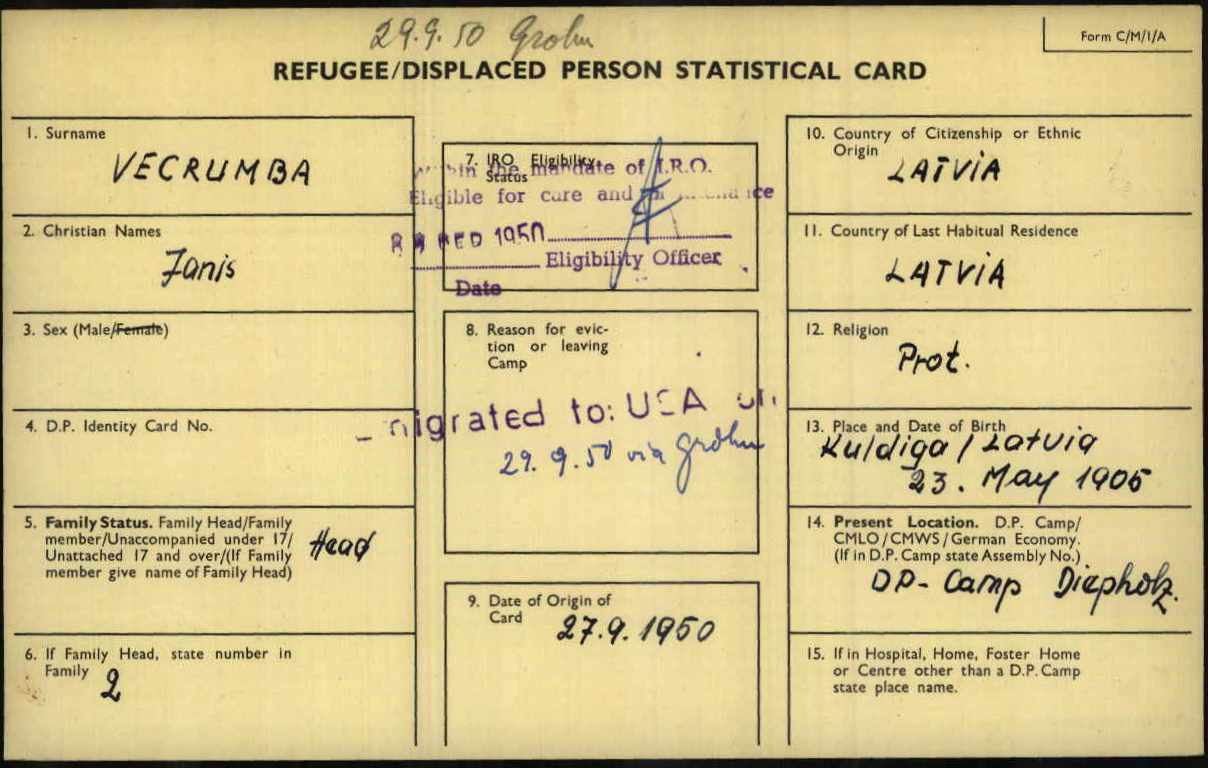 29.9.50 Grohn
Form C/M/1/A
REFUGEE/DISPLACED PERSON STATISTICAL CARD
1. Surname
VECRUMBA
2. Christian Names
Janis
3. Sex (Male/Female)
4. D.P. Identity Card No.
5. Family Status. Family Head/Family
member/Unaccompanied under 17/
Unattached 17 and over/(If Family
member give name of Family Head)
Head
6. If Family Head, state number in
Family
2
7. IRO Eligibility
Status
Within the mandate of I.R.O.
Eligible for care and
1950
Eligibility Officer
Date
8. Reason for evic-
tion or leaving
Camp
Emigrated to: USA on
29.9.50 via Grohn
9. Date of Origin of
Card
27.9.1950
10. Country of Citizenship or Ethnic
Origin
LATVIA
11. Country of Last Habitual Residence
LATVIA
12. Religion
Prot.
13. Place and Date of Birth
Kuldiga / Latvia
23. May 1905
14. Present Location. D.P. Camp/
CMLO/CMWS/German Economy.
(If in D.P. Camp state Assembly No.)
DP-Camp Diepholz.
15. If in Hospital, Home, Foster Home
or Centre other than a D.P. Camp
state place name.